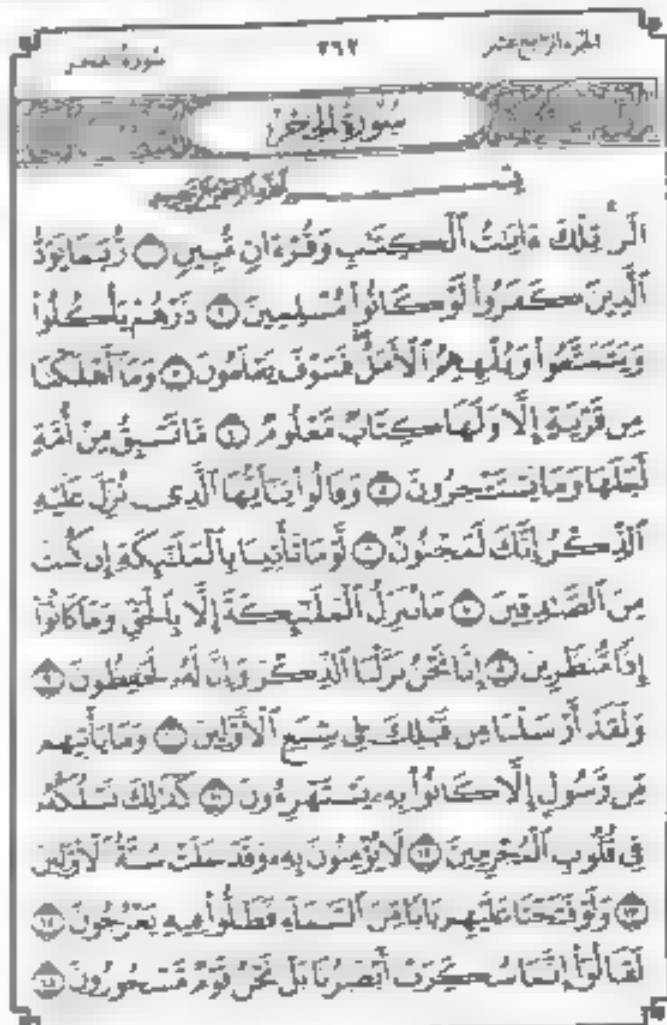 الجزء الرابع عشر ٢٦٢ سورة الحجر
سُورَةُ الحِجْرِ
بِسْمِ اللَّهِ الرَّحْمَٰنِ الرَّحِيمِ
الٓرۚ تِلْكَ ءَايَٰتُ ٱلْكِتَٰبِ وَقُرْءَانٍ مُّبِينٍ ١ رُّبَمَا يَوَدُّ
ٱلَّذِينَ كَفَرُوا۟ لَوْ كَانُوا۟ مُسْلِمِينَ ٢ ذَرْهُمْ يَأْكُلُوا۟
وَيَتَمَتَّعُوا۟ وَيُلْهِهِمُ ٱلْأَمَلُ ۖ فَسَوْفَ يَعْلَمُونَ ٣ وَمَآ أَهْلَكْنَا
مِن قَرْيَةٍ إِلَّا وَلَهَا كِتَابٌ مَّعْلُومٌ ٤ مَّا تَسْبِقُ مِنْ أُمَّةٍ
أَجَلَهَا وَمَا يَسْتَـْٔخِرُونَ ٥ وَقَالُوا۟ يَٰٓأَيُّهَا ٱلَّذِى نُزِّلَ عَلَيْهِ
ٱلذِّكْرُ إِنَّكَ لَمَجْنُونٌ ٦ لَّوْ مَا تَأْتِينَا بِٱلْمَلَٰٓئِكَةِ إِن كُنتَ
مِنَ ٱلصَّٰدِقِينَ ٧ مَا نُنَزِّلُ ٱلْمَلَٰٓئِكَةَ إِلَّا بِٱلْحَقِّ وَمَا كَانُوٓا۟
إِذًا مُّنظَرِينَ ٨ إِنَّا نَحْنُ نَزَّلْنَا ٱلذِّكْرَ وَإِنَّا لَهُۥ لَحَٰفِظُونَ ٩
وَلَقَدْ أَرْسَلْنَا مِن قَبْلِكَ فِى شِيَعِ ٱلْأَوَّلِينَ ١٠ وَمَا يَأْتِيهِم
مِّن رَّسُولٍ إِلَّا كَانُوا۟ بِهِۦ يَسْتَهْزِءُونَ ١١ كَذَٰلِكَ نَسْلُكُهُۥ
فِى قُلُوبِ ٱلْمُجْرِمِينَ ١٢ لَا يُؤْمِنُونَ بِهِۦ ۖ وَقَدْ خَلَتْ سُنَّةُ ٱلْأَوَّلِينَ
١٣ وَلَوْ فَتَحْنَا عَلَيْهِم بَابًا مِّنَ ٱلسَّمَآءِ فَظَلُّوا۟ فِيهِ يَعْرُجُونَ ١٤
لَقَالُوٓا۟ إِنَّمَا سُكِّرَتْ أَبْصَٰرُنَا بَلْ نَحْنُ قَوْمٌ مَّسْحُورُونَ ١٥